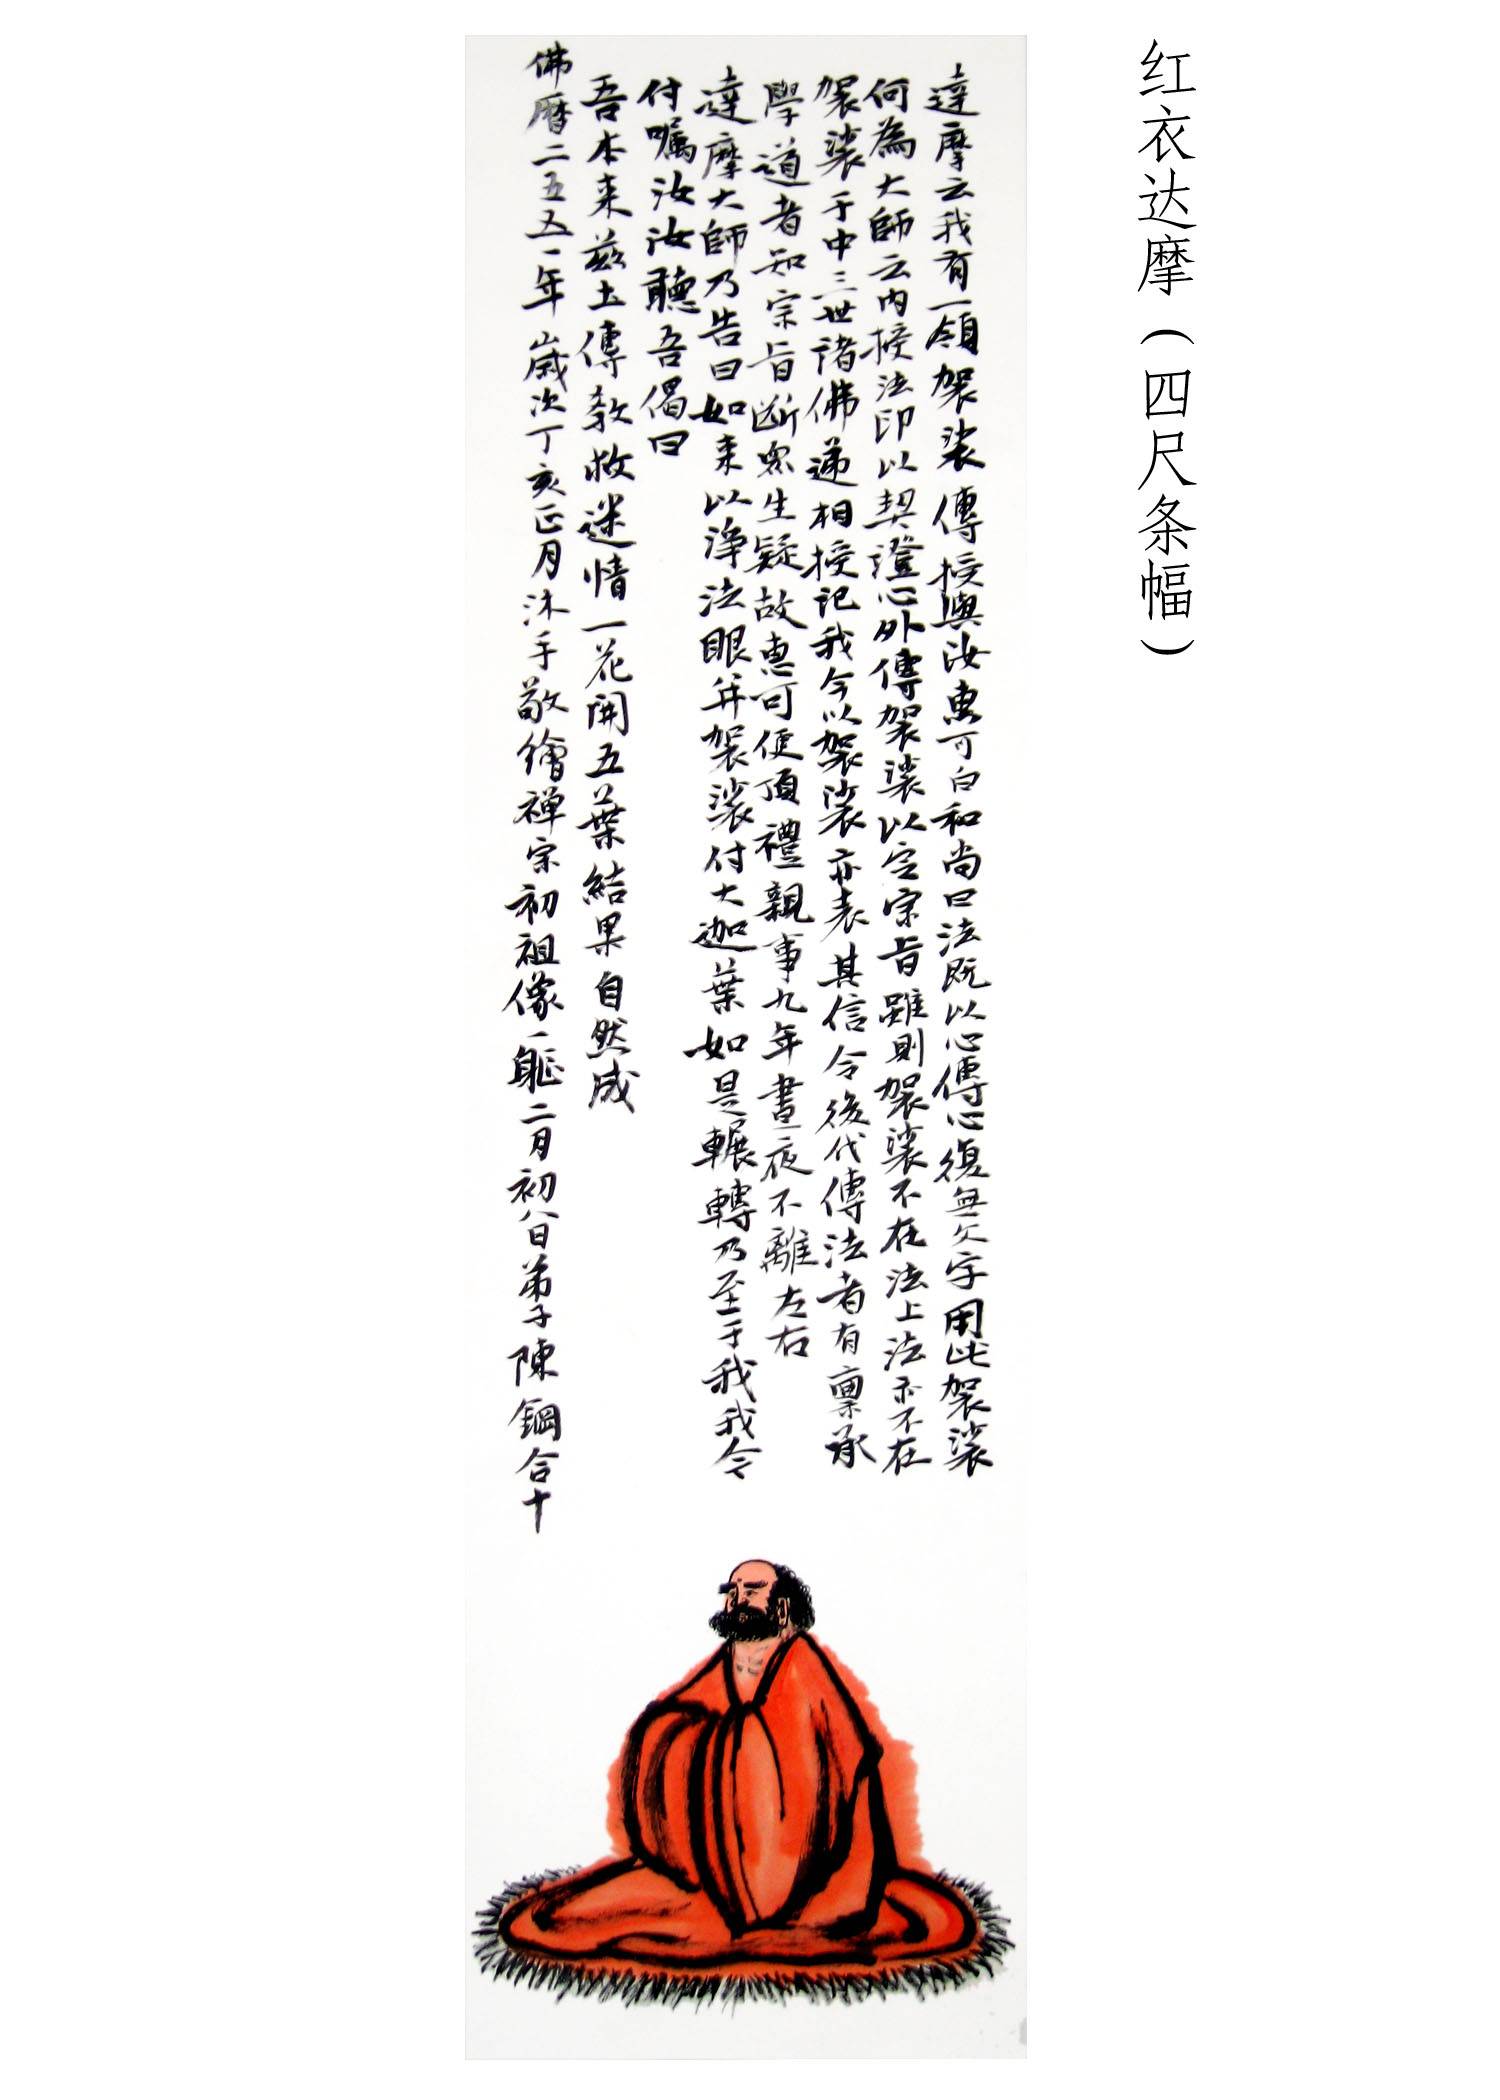 红衣达摩（四尺条幅）
達摩云我有一領袈裟傳授與汝惠可白和尚曰法既以心傳心復無文字用此袈裟
何為大師云内授法印以契證心外傳袈裟以定宗旨雖則袈裟不在法上法亦不在
袈裟于中三世諸佛遞相授記我今以袈裟亦表其信令後代傳法者有稟承
學道者知宗旨断眾生疑故惠可便頂禮親事九年晝夜不離左右
達摩大師乃告曰如来以淨法眼并袈裟付大迦葉如是輾轉乃至于我我今
付囑汝汝聽吾偈曰
吾本来茲土傳教救迷情一花開五葉結果自然成
佛曆二五五一年歲次丁亥正月沐手敬繪禪宗初祖像一軀二月初八日弟子陳鋼合十